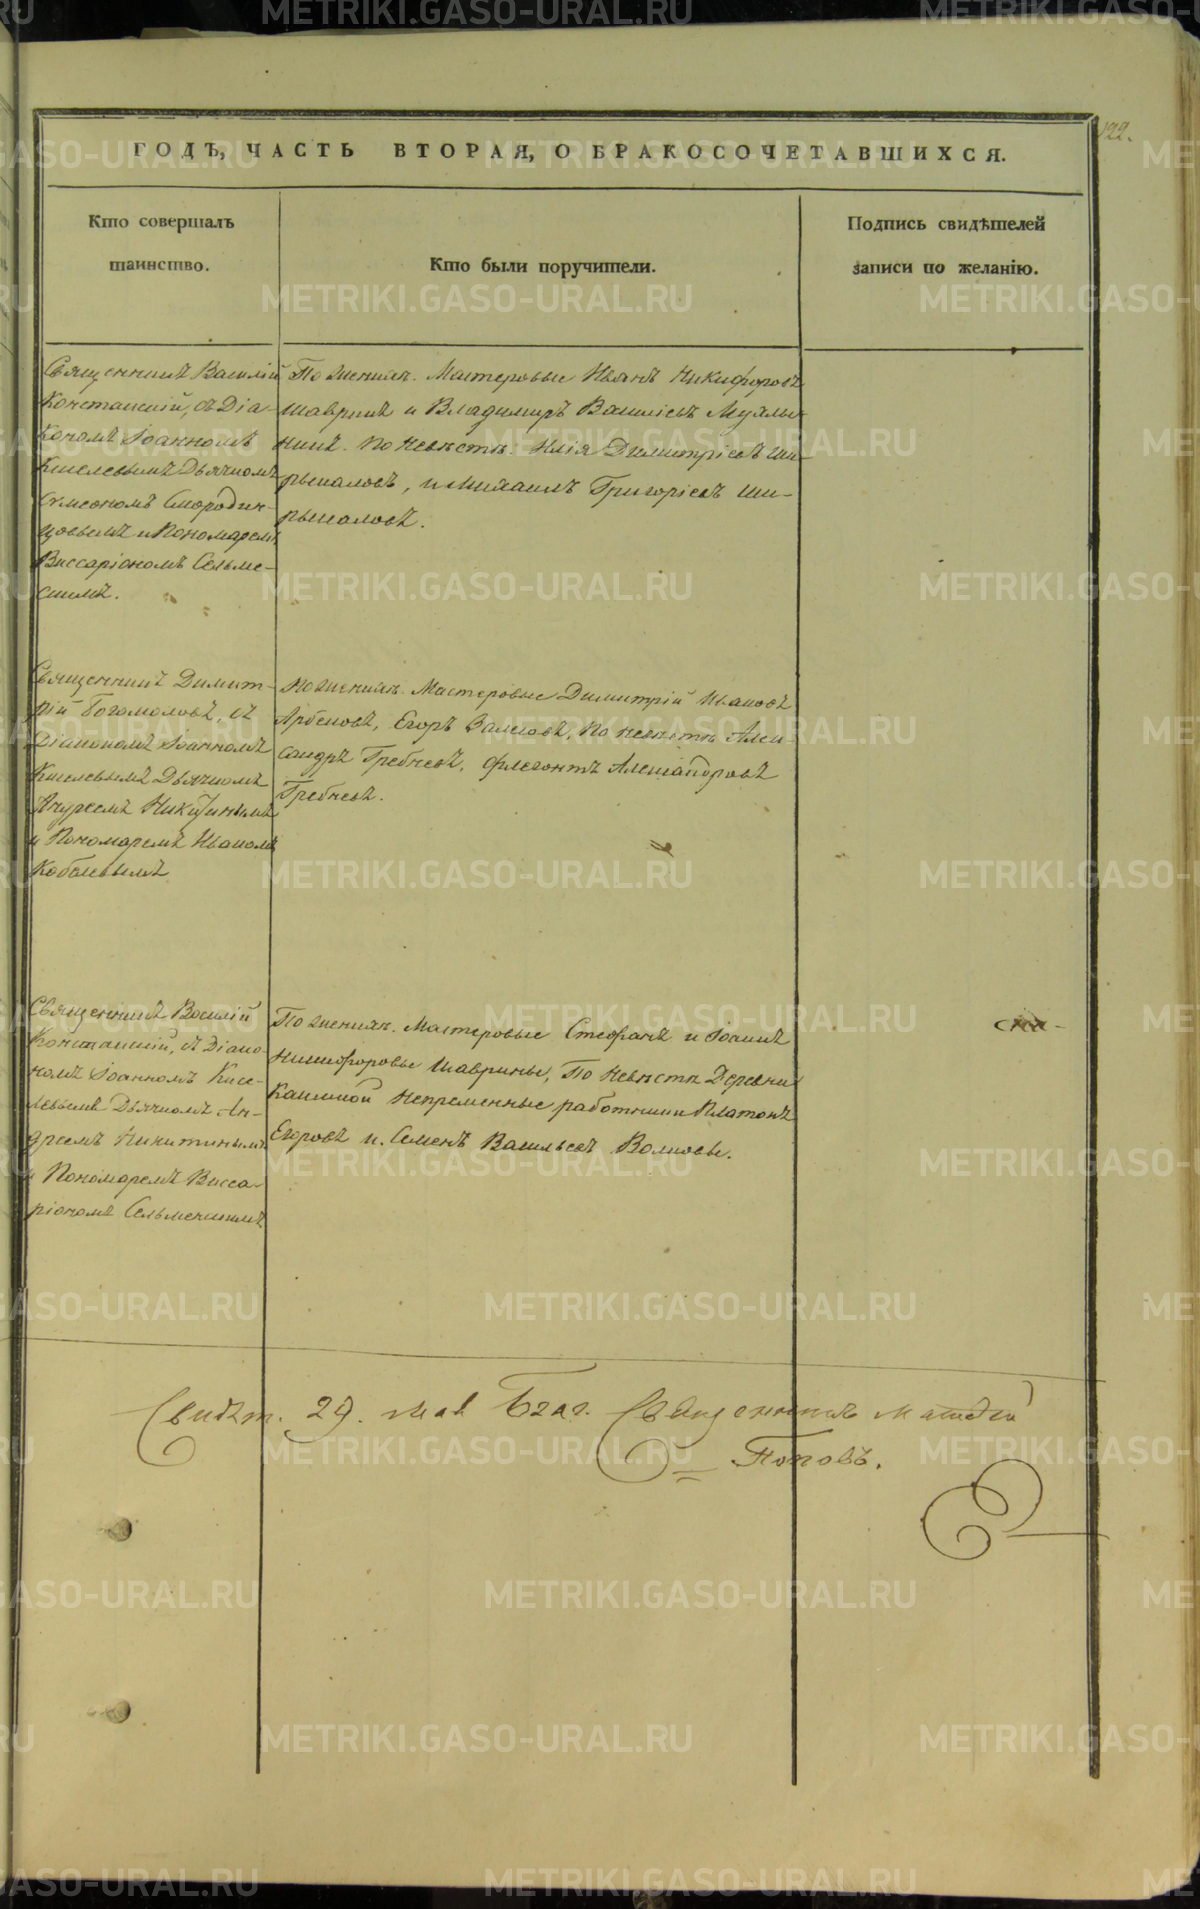 122.
ГОДЪ, ЧАСТЬ ВТОРАЯ, О БРАКОСОЧЕТАВШИХСЯ.
Кто совершалъ
таинство.
Кто были поручители.
Подпись свидѣтелей
записи по желанію.
Священникъ Василій
Констанскій, съ Діа-
кономъ Іоанномъ
Киселевымъ Дьячкомъ
Симеономъ Смородин-
цовымъ и Пономаремъ
Виссаріономъ Сельме-
скимъ.
По женихѣ. Мастеровые Иванъ Никифоровъ
Шавринъ и Владимиръ Василіевъ
По невѣстѣ: Илія Димитріевъ Ши-
рыкаловъ, и Михаилъ Григоріевъ Ши-
рыкаловъ.
Священникъ Димит-
рій Богомоловъ, съ
Діакономъ Іоанномъ
Киселевымъ Дьячкомъ
Андреемъ Никитинымъ
и Пономаремъ Иваномъ
Кобелевымъ
По женихѣ. Мастеровые Димитрій Ивановъ
Егоръ По невѣстѣ Алек-
сандръ Гребневъ, Флегонтъ Александровъ
Гребневъ.
Священникъ Василій
Констанскій, съ Діако-
номъ Іоанномъ Кисе-
левымъ Дьячкомъ Ан-
дреемъ Никитинымъ
и Пономаремъ Висса-
ріономъ Сельменскимъ
По женихѣ. Мастеровые Стефанъ и Іоаннъ
Никифоровы Шаврины, По невѣстѣ Деревни
Каменной Непременные работники Платонъ
Егоровъ и Семенъ Васильевъ Волковы.
Свидѣт. 29. Мая Благ. Священникъ Матвѣй
Поповъ.
METRIKI.GASO-URAL.RU